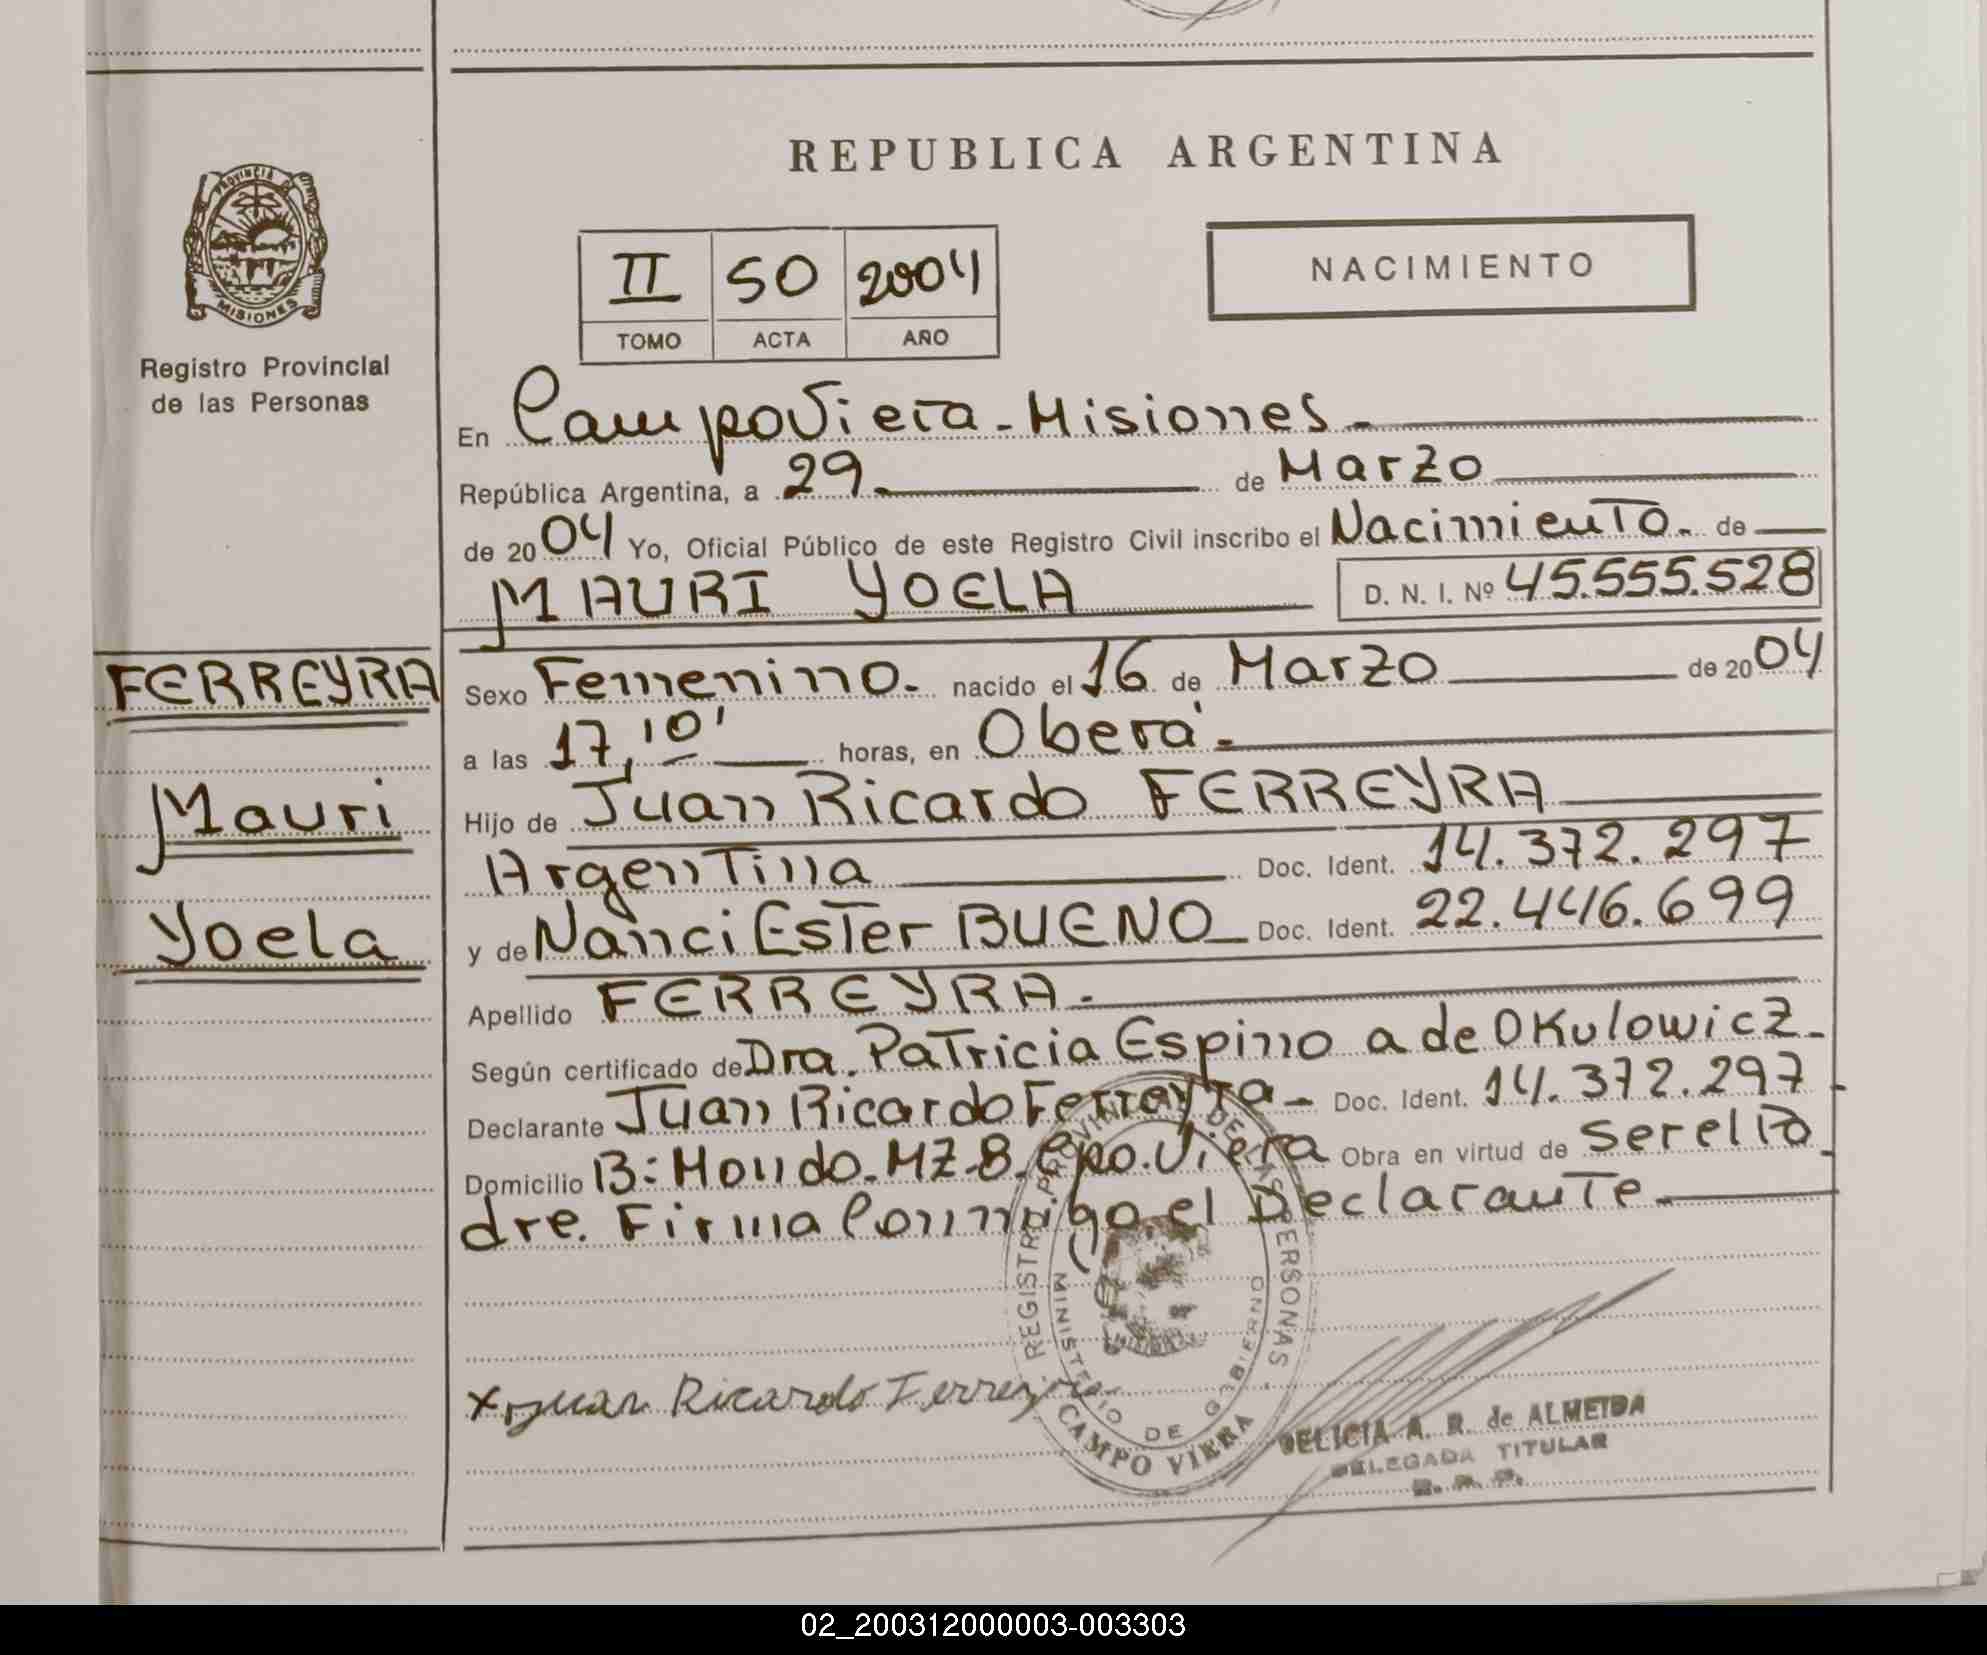 REPUBLICA ARGENTINA
PROVINCIA DE MISIONES
Registro Provincial
de las Personas
II 50 2004
TOMO ACTA AÑO
NACIMIENTO
En CampoViera - Misiones -
República Argentina, a 29 de Marzo
de 2004 Yo, Oficial Público de este Registro Civil inscribo el Nacimiento. de
MAURI YOELA D. N. I. Nº 45.555.528
FERREYRA
Mauri
Yoela
Sexo Femenino. nacido el 16 de Marzo de 2004
a las 17,10' horas, en Oberá.
Hijo de Juan Ricardo FERREYRA
Argentina Doc. Ident. 14.372.297
y de Nanci Ester BUENO Doc. Ident. 22.446.699
Apellido FERREYRA.
Según certificado de Dra. Patricia Espino a de Okulowicz.
Declarante Juan Ricardo Ferreyra - Doc. Ident. 14.372.297
Domicilio B: Mondo. MZ-8. Cpo. Viera Obra en virtud de ser el Pa
dre. Firma Conmigo el Declarante.
x Juan Ricardo Ferreyra
REGISTRO PROVINCIAL DE LAS PERSONAS
MINISTERIO DE GOBIERNO
CAMPO VIERA
DELICIA A. R. de ALMEIDA
DELEGADA TITULAR
R. P. P.
02_200312000003-003303